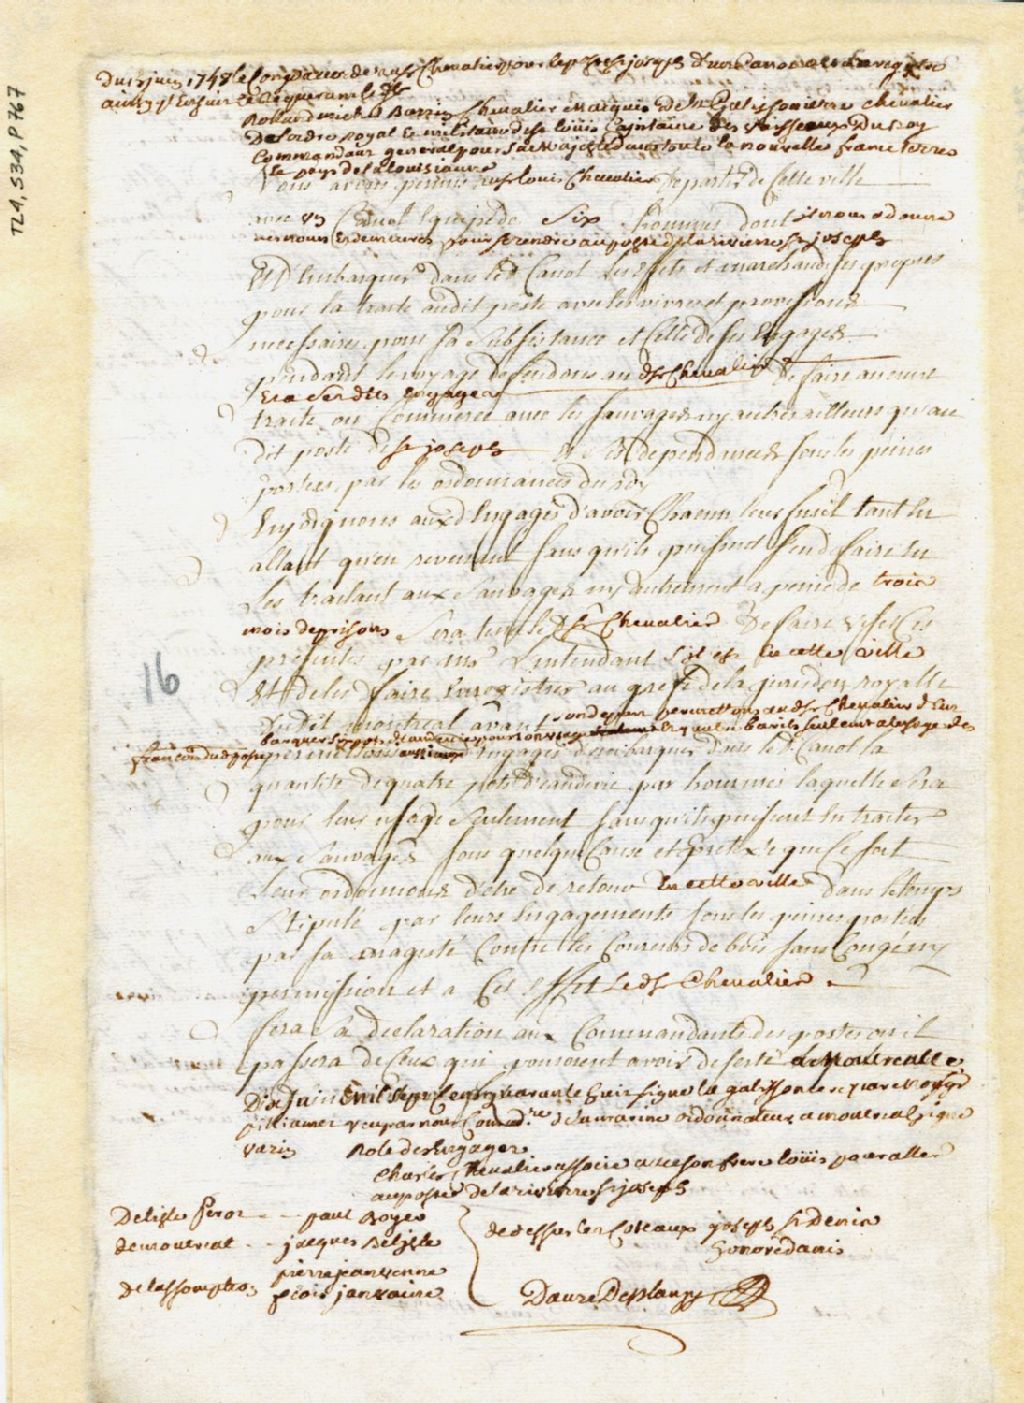 TL4, S34, P767
Du 13 juin 1748 le Congé au Sr de Louis Chevalier pour le poste St joseph d'un Canot a Enregistré
ainsy
Rolland michel Barrin Chevalier marquis De la Galissonniere chevalier
De Lordre royal Et militaire de St louïs Capitaine des Vaisseaux Du Roy
Commandant general pour Sa Majesté dans toute la nouvelle france terres
Et pays de la louisianne
Nous avons permis au Sr louis Chevalier De partir de Cette ville
avec un Canot Equipé de Six hommes dont
pour se rendre au poste de la riviere St joseph
Et D'Embarquer dans led. Canot les Effets et marchandises propres
pour la traite audit poste avec les vivres et provisions
necessaires pour sa Subsistance et Celle de ses Engagés
pendant le voyage Defendons au d. Sr Chevalier De faire aucune
Et a Ses dits Engagés
traite ou Commerce avec les sauvages ny autres ailleurs qu'au
dit poste de St joseph Et dependances sous les peines
portées par les ordonnances du roy
Enjoignons auxd. Engagés d'avoir Chacun leur fusil tant En
allant qu'en revenant sans qu'ils puissent s'en defaire En
Les traitant aux Sauvages ny autrement a peine de trois
mois de prisons Sera tenu led. Sr Chevalier De faire
presente par Mr L'intendant S'il est En cette ville
Et de les faire Enregistrer au greffe de la jurisdon royalle
dudit montreal avant son depart permettons aud. Sr Chevalier d'Em
barquer pots d'eaudevie pour son usage En quatre barils seulement a l'usage des
francois du d. poste permettons aussi aux Engagés d'embarquer dans led. Canot la
quantité de quatre pots d'eaudevie par hommes laquelle sera
pour leur usage Seulement sans qu'ils puissent En traiter
aux Sauvages sous quelque Cause et pretexte que Ce soit
Leur ordonnons d'être de retour En cette ville dans le temps
Stipulé par leurs Engagements sous les peines portées
par sa majesté Contre les Coureurs de bois sans Congé ny
permission et a Cet Effet Led. Sr Chevalier
fera Sa declaration aux Commandants des postes ou il
passera de Ceux qui pouroient avoir deserté a Montrealle
Dix Juin Mil Sept Cent quarante huit signé la galissonniere
Veu par nous Comre de la marine ordonnateur a montreal signé
varin Role des Engagés
Charles Chevalier associé avec son frere louïs pour aller
au poste de la riviere St joseph
De lisle Perot - - paul Boyer
de montreal - - jacques Delisle
pierre janvenne
de lassomption francois janvenne
de dessus les Coteaux joseph St Denis
honoré danis
Danré Deblanzy
16